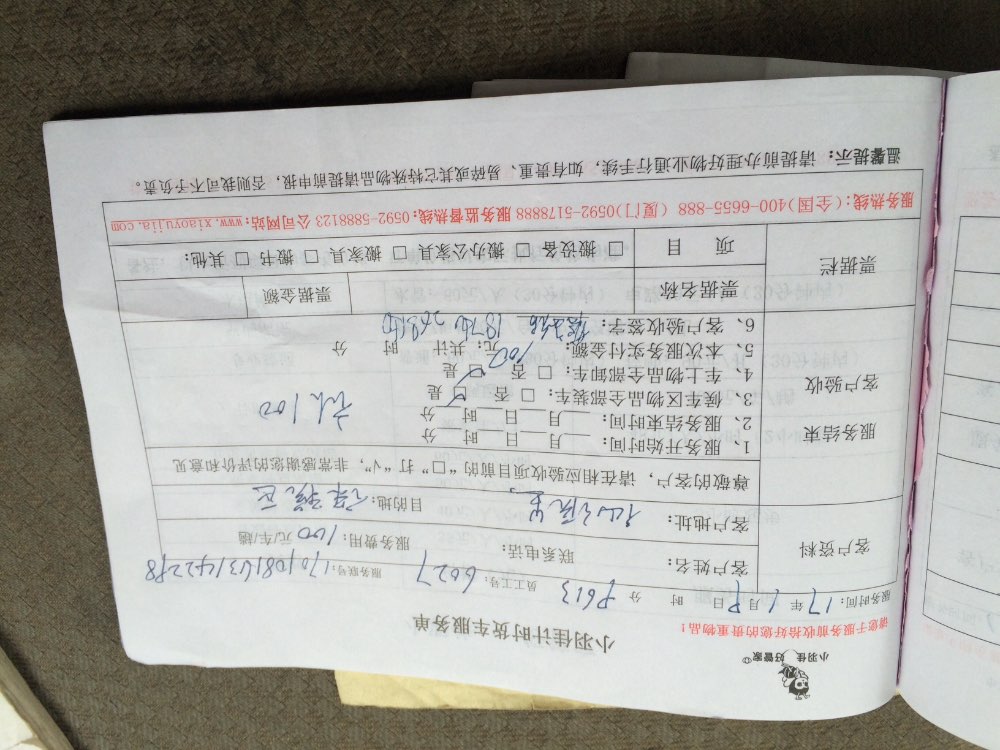 小羽佳 好管家
请您于服务前收拾好您的贵重物品！
小羽佳计时货车服务单
服务时间：17年1月8日 时 分 P613 员工工号：6027 服务联号：
客户资料
客户姓名： 联系电话： 服务费用：100元/车/趟
客户地址： 目的地：保税区
尊敬的客户，请在相应验收项目前的“□”打“√”，非常感谢您的评价和意见
服务结束
客户验收
1、服务开始时间： 月 日 时 分
2、服务结束时间： 月 日 时 分
3、候车区物品全部装车：□ 否 □ 是
4、车上物品全部卸车：□ 否 □ 是
5、本次服务实付金额：100元；共计 时 分
6、客户验收签字：
100
票据栏
票据名称 票据金额
项 目 □ 搬设备 □ 搬办公家具 □ 搬家具 □ 搬书 □ 其他：
服务热线：(全国)400-6655-888 (厦门)0592-5178888 服务监督热线：0592-5888123 公司网站：www.xiaoyujia.com
温馨提示：请提前办理好物业通行手续，如有贵重、易碎或其它特殊物品请提前申报，否则我司不予负责。